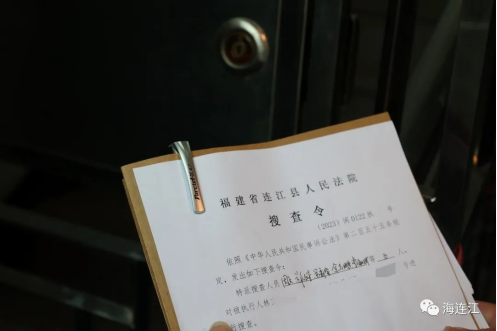 福建省连江县人民法院
搜查令
(2023)闽0122执 号
依照《中华人民共和国民事诉讼法》第二百五十五条规
定,发出如下搜查令:
特派搜查人员 等 人,
对被执行人林
搜查。
海连江